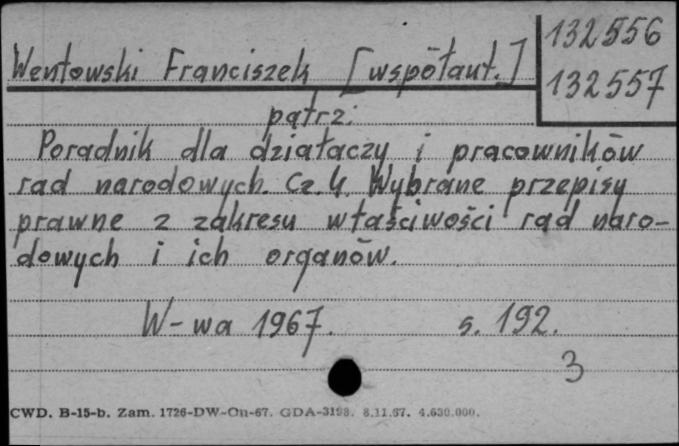 132556
Wentowski Franciszek [współaut.]
132557
patrz:
Poradnik dla działaczy i pracowników
rad narodowych. Cz. 4. Wybrane przepisy
prawne z zakresu właściwości rad naro-
dowych i ich organów.
W-wa 1967. s. 192.
3
CWD. B-15-b. Zam. 1726-DW-On-67. GDA-3198. 8.11.67. 4.630.000.